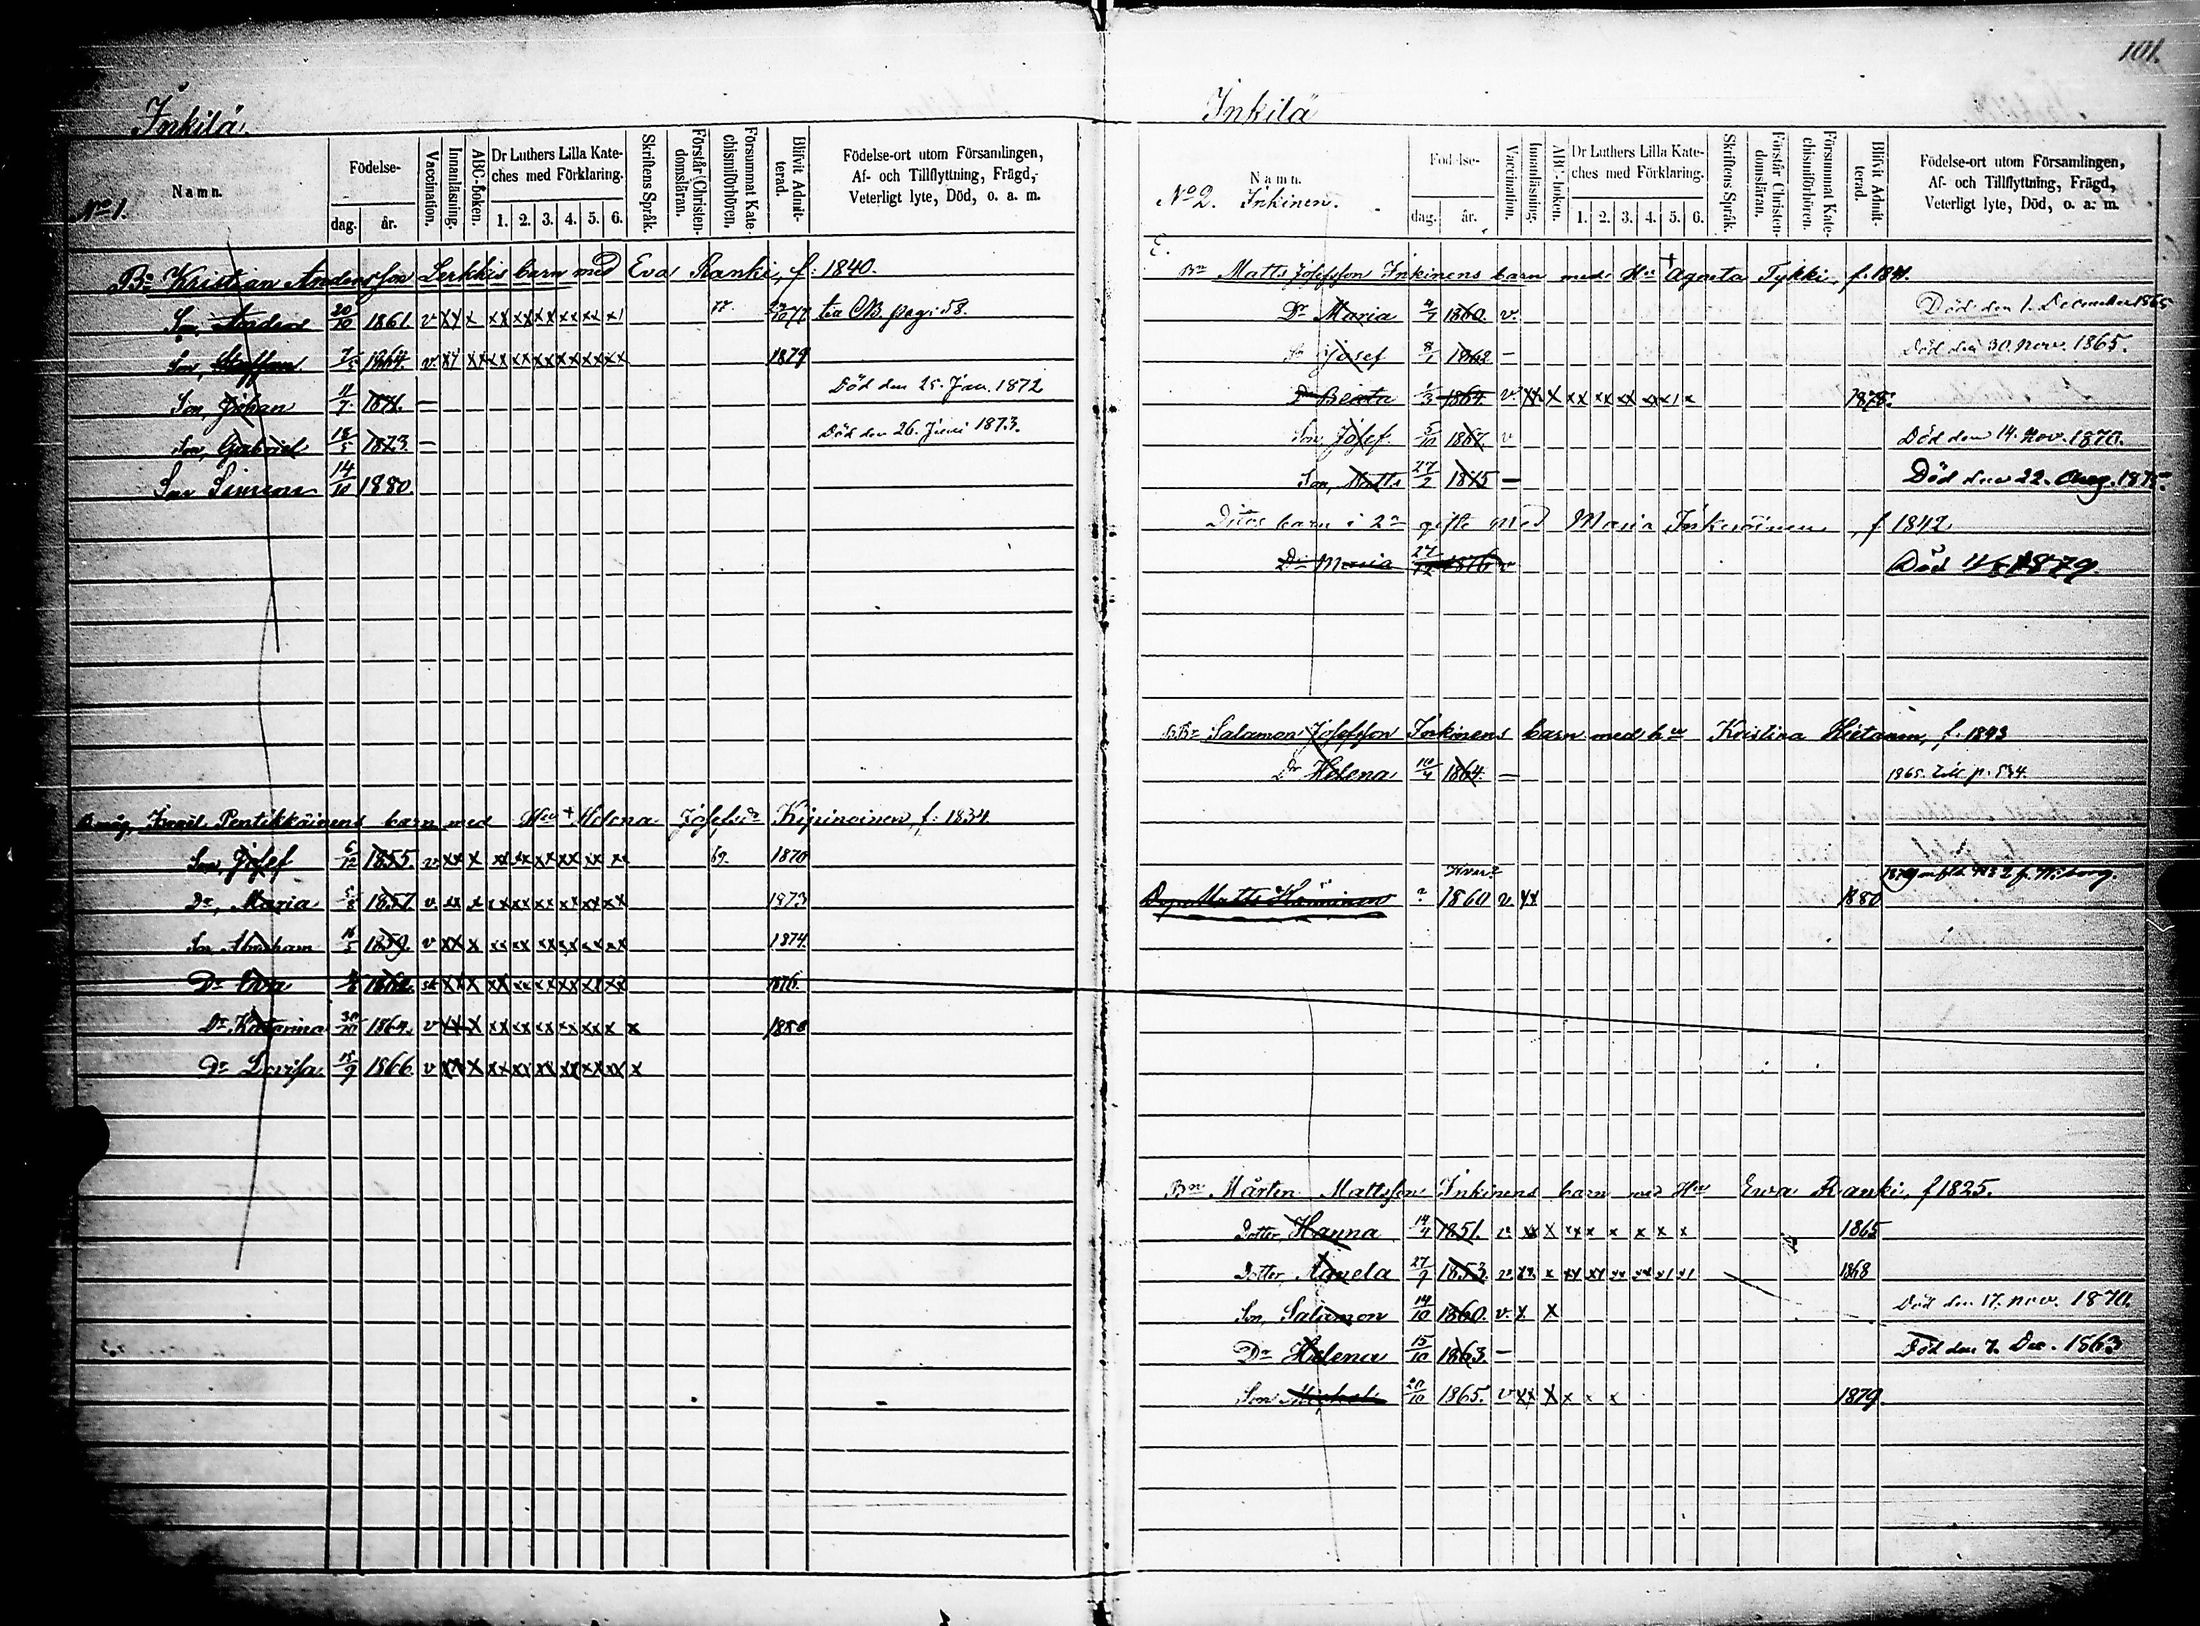 101.
Inkilä.
Namn.
Födelse-
dag.
år.
Vaccination.
Innanläsning.
ABC-boken.
Dr Luthers Lilla Kate-
ches med Förklaring.
1. 2. 3. 4. 5. 6.
Skriftens Språk.
Förstår Christen-
domsläran.
Försummat Kate-
chismiförhören.
Blifvit Admit-
terad.
Födelse-ort utom Församlingen,
Af- och Tillflyttning, Frägd,
Veterligt lyte, Död, o. a. m.
No 1.
Bn Kristian Andersson Lerkkis barn med Eva Ranki, f. 1840.
Son, Anders 20/10 1861. v xx x xx xx xx xx xx x1 77. 77
Son, Staffan 7/5 1864. v. x1 xx xx xx xx xx xx xx 1879
Son, Johan 11/7 1871. — Död den 25. Jan. 1872
Son, Gabriel 18/5 1873. — Död den 26. Juni 1873.
Son Simon 14/10 1880.
Israel Pentikkäinens barn med Hu + Helena Josefsdr Kipinoinen, f. 1834.
Son, Josef 6/12 1855. v xx x xx xx xx xx xx xx 69. 1870
Dr, Maria 5/8 1857. v. xx x xx xx xx xx xx xx 1873
Son, Abraham 16/5 1859. v xx x xx xx xx xx xx xx 1874
Dr Eva 1862. xx x xx xx xx xx xx xx 1876.
Dr. Katarina 30/10 1864. v xx x xx xx xx xx xx x x 1880
Dr Lovisa 15/9 1866 v xx x xx xx xx xx xx xx x
Inkilä
Namn.
Födelse-
dag.
år.
Vaccination.
Innanläsning.
ABC-boken.
Dr Luthers Lilla Kate-
ches med Förklaring.
1. 2. 3. 4. 5. 6.
Skriftens Språk.
Förstår Christen-
domsläran.
Försummat Kate-
chismiförhören.
Blifvit Admit-
terad.
Födelse-ort utom Församlingen,
Af- och Tillflyttning, Frägd,
Veterligt lyte, Död, o. a. m.
No 2. Inkinen.
Bn Matts Josefsson Inkinens barn med Hu + Agneta Tykki, f. 1841.
Dr Maria 4/7 1860. v. Död den 1. December 1865
Sn Josef 8/1 1862 — Död den 30. Nov. 1865.
Dr Beata 1/3 1864. v. xx x xx xx xx xx 1 x 1878.
Son, Josef 5/10 1867. v Död den 14. Nov. 1870.
Son, Matts 27/2 1875 — Död den 22. Aug. 1875.
Ditos barn i 2a gifte med Maria Inkeröinen, f 1842
Dr Maria 27/12 1876 v Död 1879.
Bn Salamon Josefsson Inkinens barn med hu Kristina Hietanen, f. 1843
Dr Helena 10/4 1864. — 1865. till p. 534.
Matts 1860 v xx 1880
Bn Mårten Mattsson Inkinens barn med Hu Ewa Ranki, f 1825.
Dotter, Hanna 14/4 1851. v xx x xx x x x x x 1865
Dotter, Amela 27/9 1853. v. xx. x xx xx xx xx x1 x1 1868
Son, Salamon 14/10 1860. v. x x Död den 17. nov. 1870.
Dr Helena 15/10 1863. — Död den 7. Dec. 1863
Son Mickel 20/10 1865. v xx x x x x 1879.